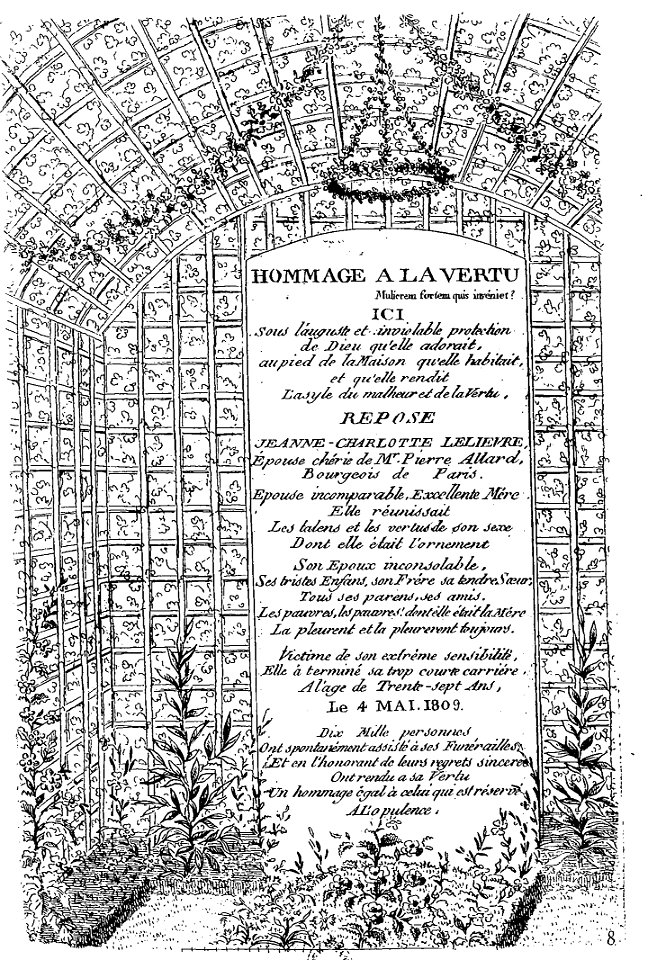 HOMMAGE A LA VERTU
Mulierem fortem quis invéniet?
ICI
Sous l'auguste et inviolable protection
de Dieu qu'elle adorait,
au pied de la Maison qu'elle habitait,
et qu'elle rendit
L'asyle du malheur et de la Vertu,
REPOSE
JEANNE-CHARLOTTE LELIEVRE
Épouse chérie de Mr. Pierre Allard,
Bourgeois de Paris.
Epouse incomparable, Excellente Mère
Elle réunissait
Les talens et les vertus de son sexe
Dont elle était l'ornement
Son Epoux inconsolable,
Ses tristes Enfans, son Frère sa tendre Sœur,
Tous ses parens, ses amis.
Les pauvres, les pauvres! dont elle était la Mère
La pleurent et la pleureront toujours.
Victime de son extrême sensibilité,
Elle à terminé sa trop courte carrière,
A l'age de Trente-sept Ans,
Le 4 MAI. 1809.
Dix Mille personnes
Ont spontanément assisté à ses Funérailles,
Et en l'honorant de leurs regrets sinceres
Ont rendu a sa Vertu
Un hommage égal à celui qui est réservé
A L'opulence.
8